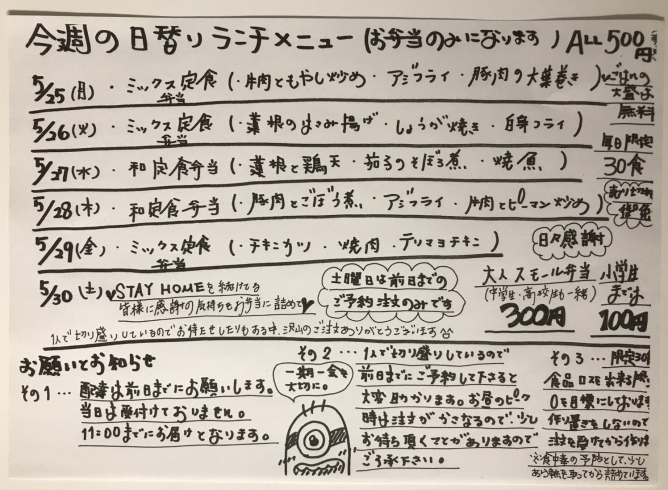 今週の日替りランチメニュー(お弁当のみになります) ALL500円
5/25(月)・ミックス定食弁当(・牛肉ともやし炒め・アジフライ・豚肉の大葉巻き)
ごはんの大盛は無料
5/26(火)・ミックス定食弁当(・蓮根のはさみ揚げ・しょうが焼き・白身フライ)
毎日限定
5/27(水)・和定食弁当(・蓮根と鶏天・茄子のそぼろ煮・焼魚)
30食
5/28(木)・和定食弁当(・豚肉とごぼう煮・アジフライ・牛肉とピーマン炒め)
売り切れ御免
5/29(金)・ミックス定食弁当(・チキンカツ・焼肉・テリマヨチキン)
日々感謝
5/30(土)♥STAY HOMEを続けてる
皆様に感謝の気持ちをお弁当に詰めて♥
土曜日は前日までの
ご予約注文のみです
大人スモール弁当
(中学生・高校生も一緒)
300円
小学生
までは
100円
1人で切り盛りしているのでお待たせしたりもある中、沢山のご注文ありがとうございます
お願いとお知らせ
その1…配達は前日までにお願いします。
当日は受付けておりません。
11:00までにお届けとなります。
一期一会を
大切に。
その2…1人で切り盛りしているので
前日までにご予約して下さると
大変助かります。お昼のピーク
時は注文がかさなるので、少し
お待ち頂くことがありますので
ご了承下さい。
その3…限定30食
食品ロスを出来る限り
0を目標にしております
作り置きをしないので
注文を受けてから作ります
※食中毒の予防として、少し